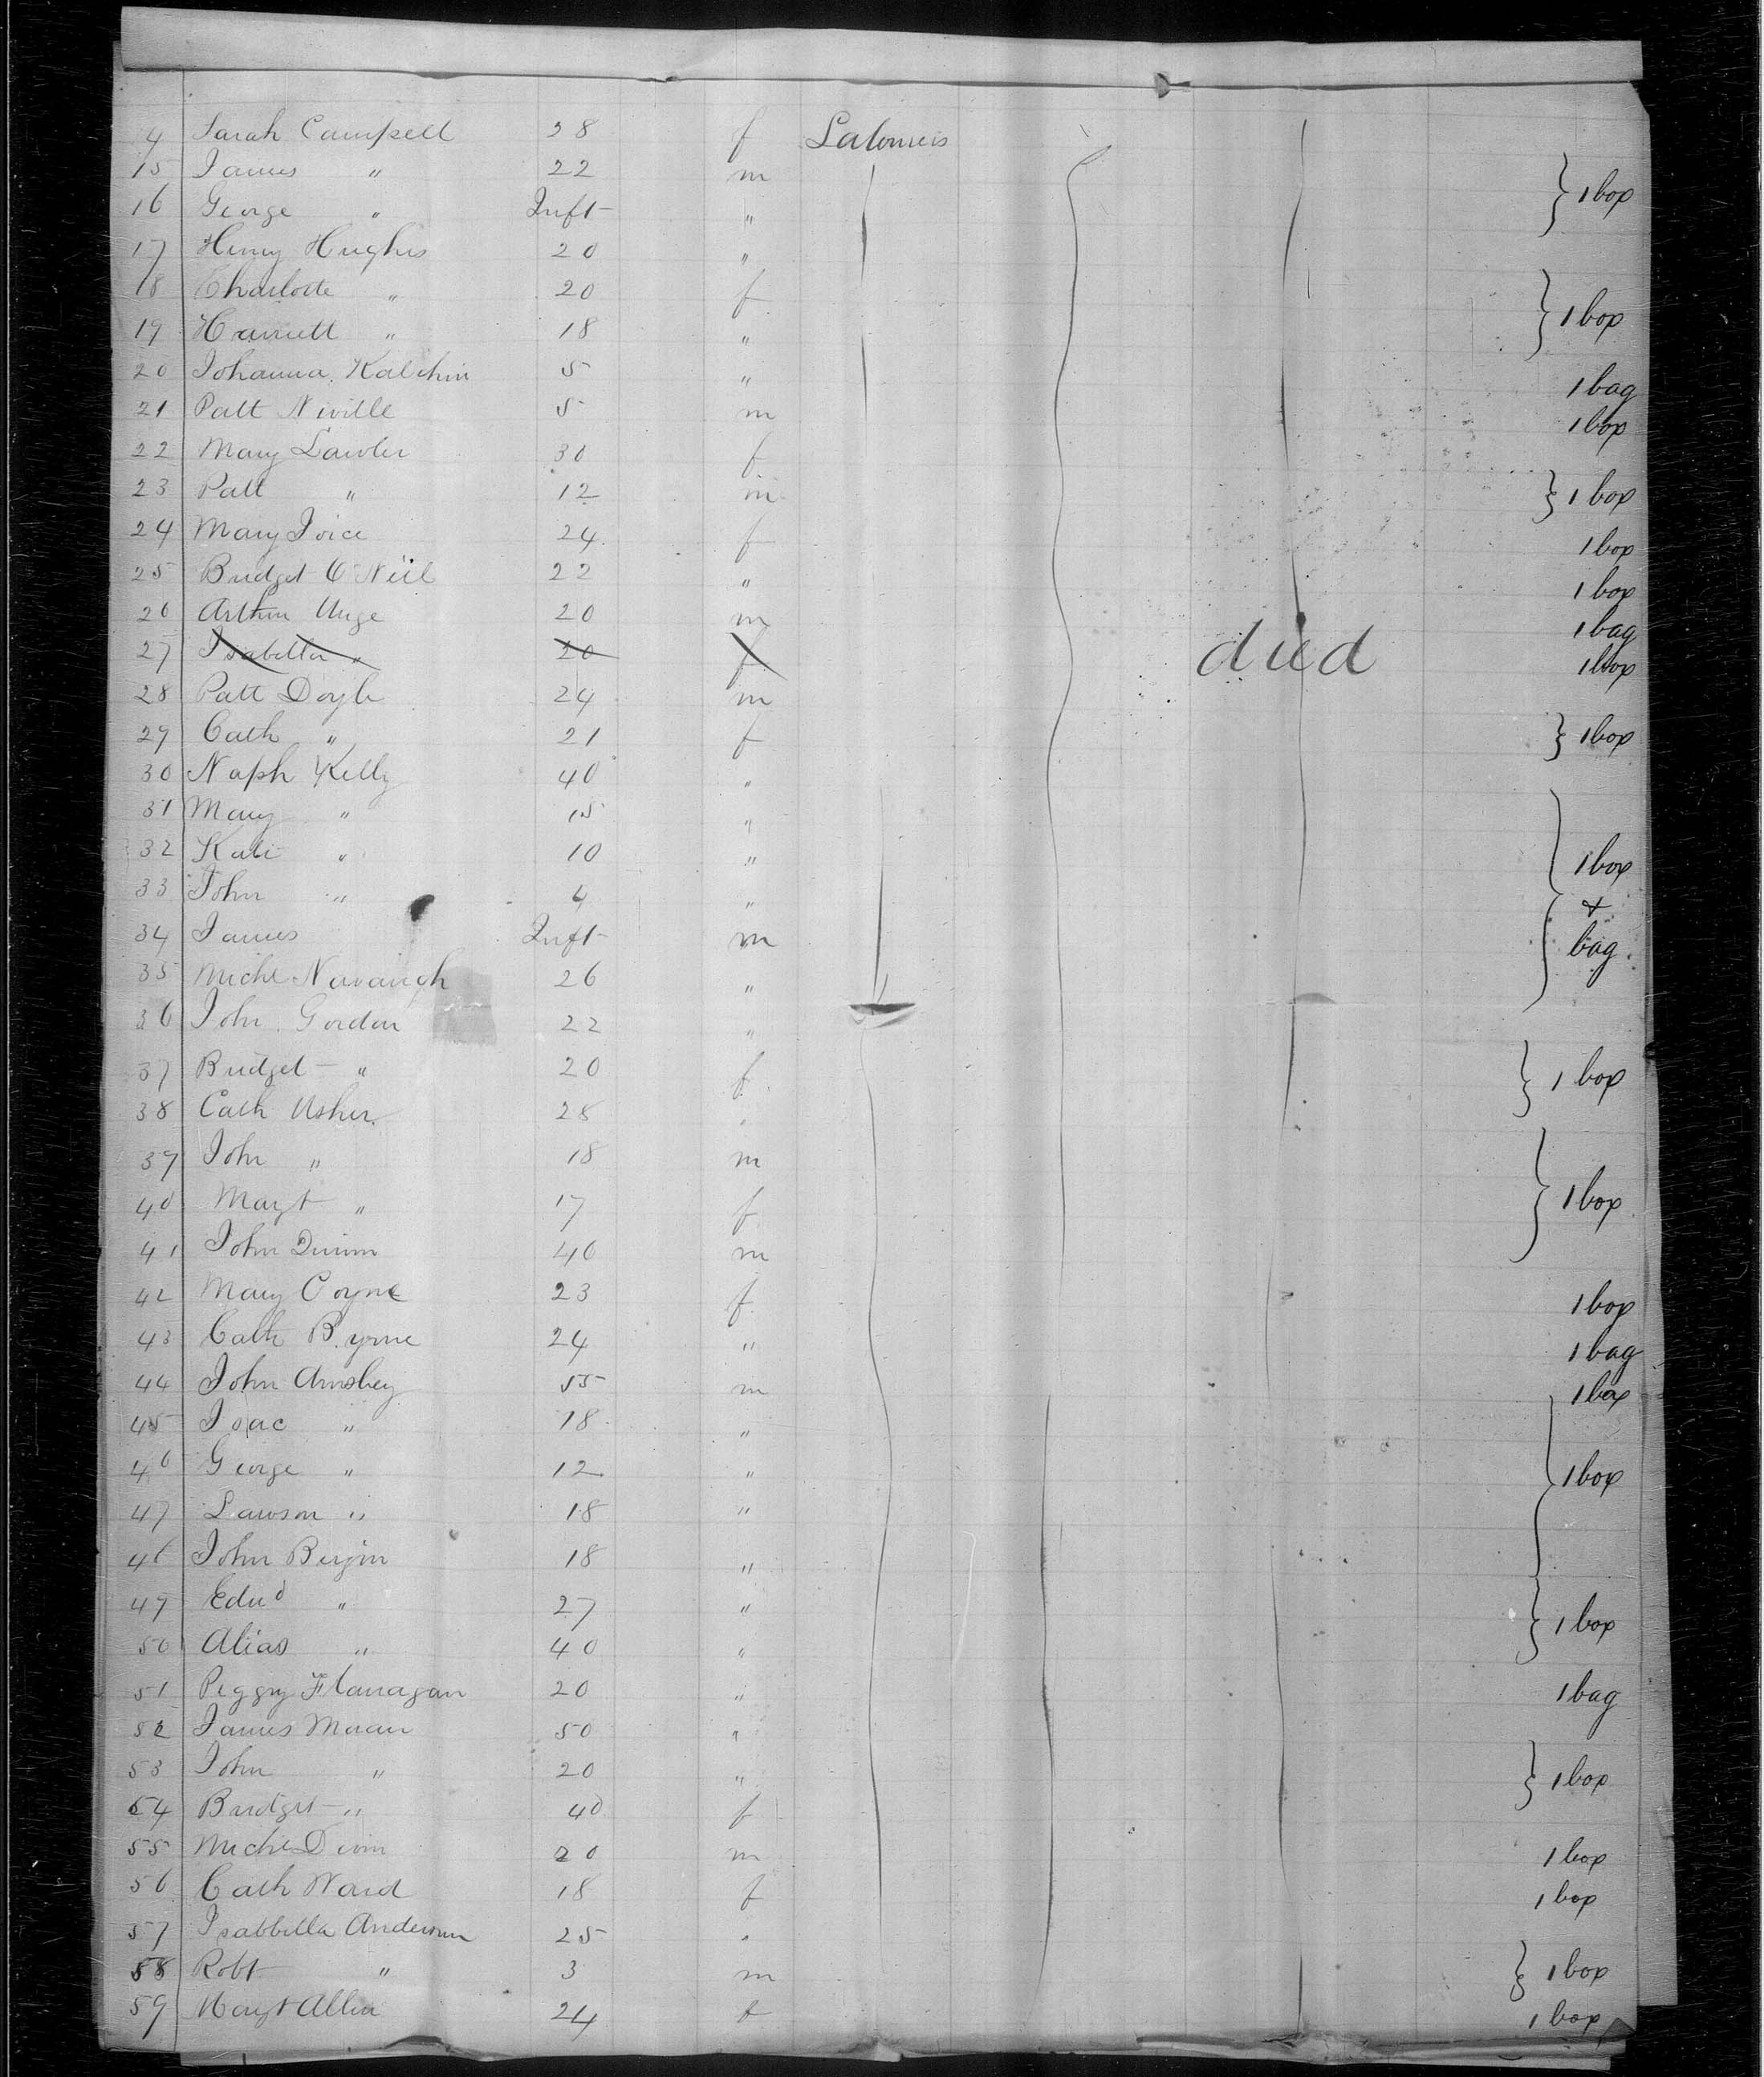 4 Sarah Campbell 28 f Laborers
15 James " 22 m } 1 box
16 George " Inft "
17 Henry Hughes 20 "
18 Charlotte " 20 f } 1 box
19 Harriett " 18 "
20 Johanna 5 " 1 bag
21 Patt Neville 5 m 1 box
22 Mary Lawler 30 f
23 Patt " 12 m } 1 box
24 Mary Joice 24 f 1 box
25 Bridget O'Neil 22 " 1 box
26 Arthur 20 m 1 bag
27 Isabella " 20 f died 1 box
28 Patt Doyle 24 m
29 Cath " 21 f } 1 box
30 Kelly 40 "
31 Mary " 15 "
32 Kate " 10 " } 1 box
33 John " 4 " &
34 James Inft m bag
35 Michl 26 "
36 John Gordon 22 "
37 Bridget " 20 f } 1 box
38 Cath Usher 28 "
39 John " 18 m
40 Margt " 17 f } 1 box
41 John Quinn 40 m
42 Mary Coyne 23 f 1 box
43 Cath Byrne 24 " 1 bag
44 John 55 m 1 box
45 Isac " 18 "
46 George " 12 " } 1 box
47 Lawson " 18 "
48 John Bergin 18 "
49 Edwd " 27 " } 1 box
50 Alias " 40 "
51 Peggy Flanagan 20 " 1 bag
52 James 50 "
53 John " 20 " } 1 box
54 Bridget " 40 f
55 Michl 20 m 1 box
56 Cath Ward 18 f 1 box
57 Isabbella Anderson 25 "
58 Robt " 3 m } 1 box
59 Margt Allen 24 f 1 box